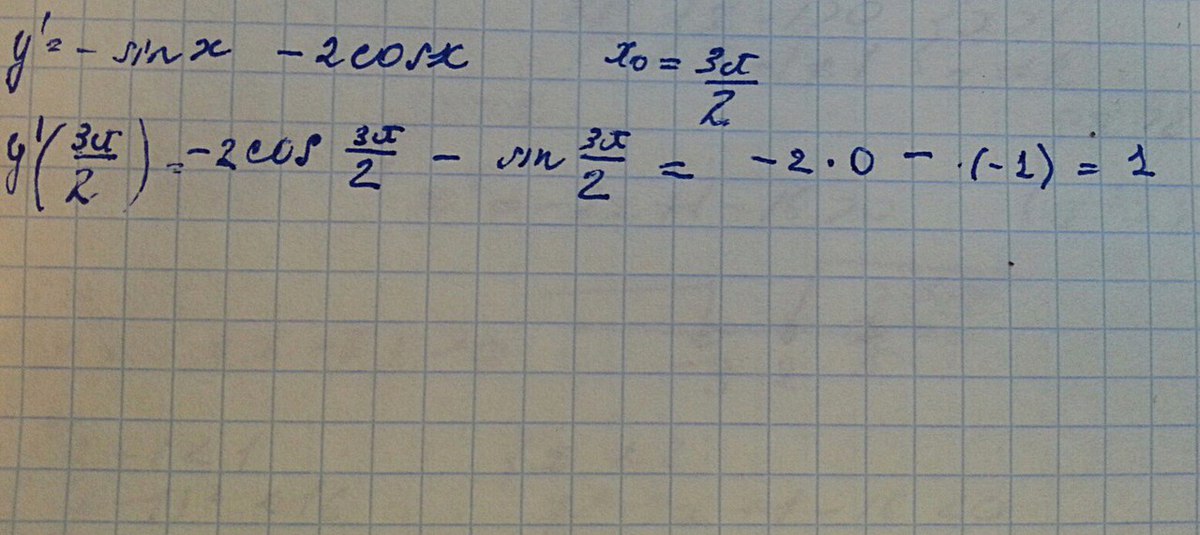 y' = - sin x - 2cosx x₀ = 3π/2
y'(3π/2) = -2cos 3π/2 - sin 3π/2 = -2·0 - ·(-1) = 1